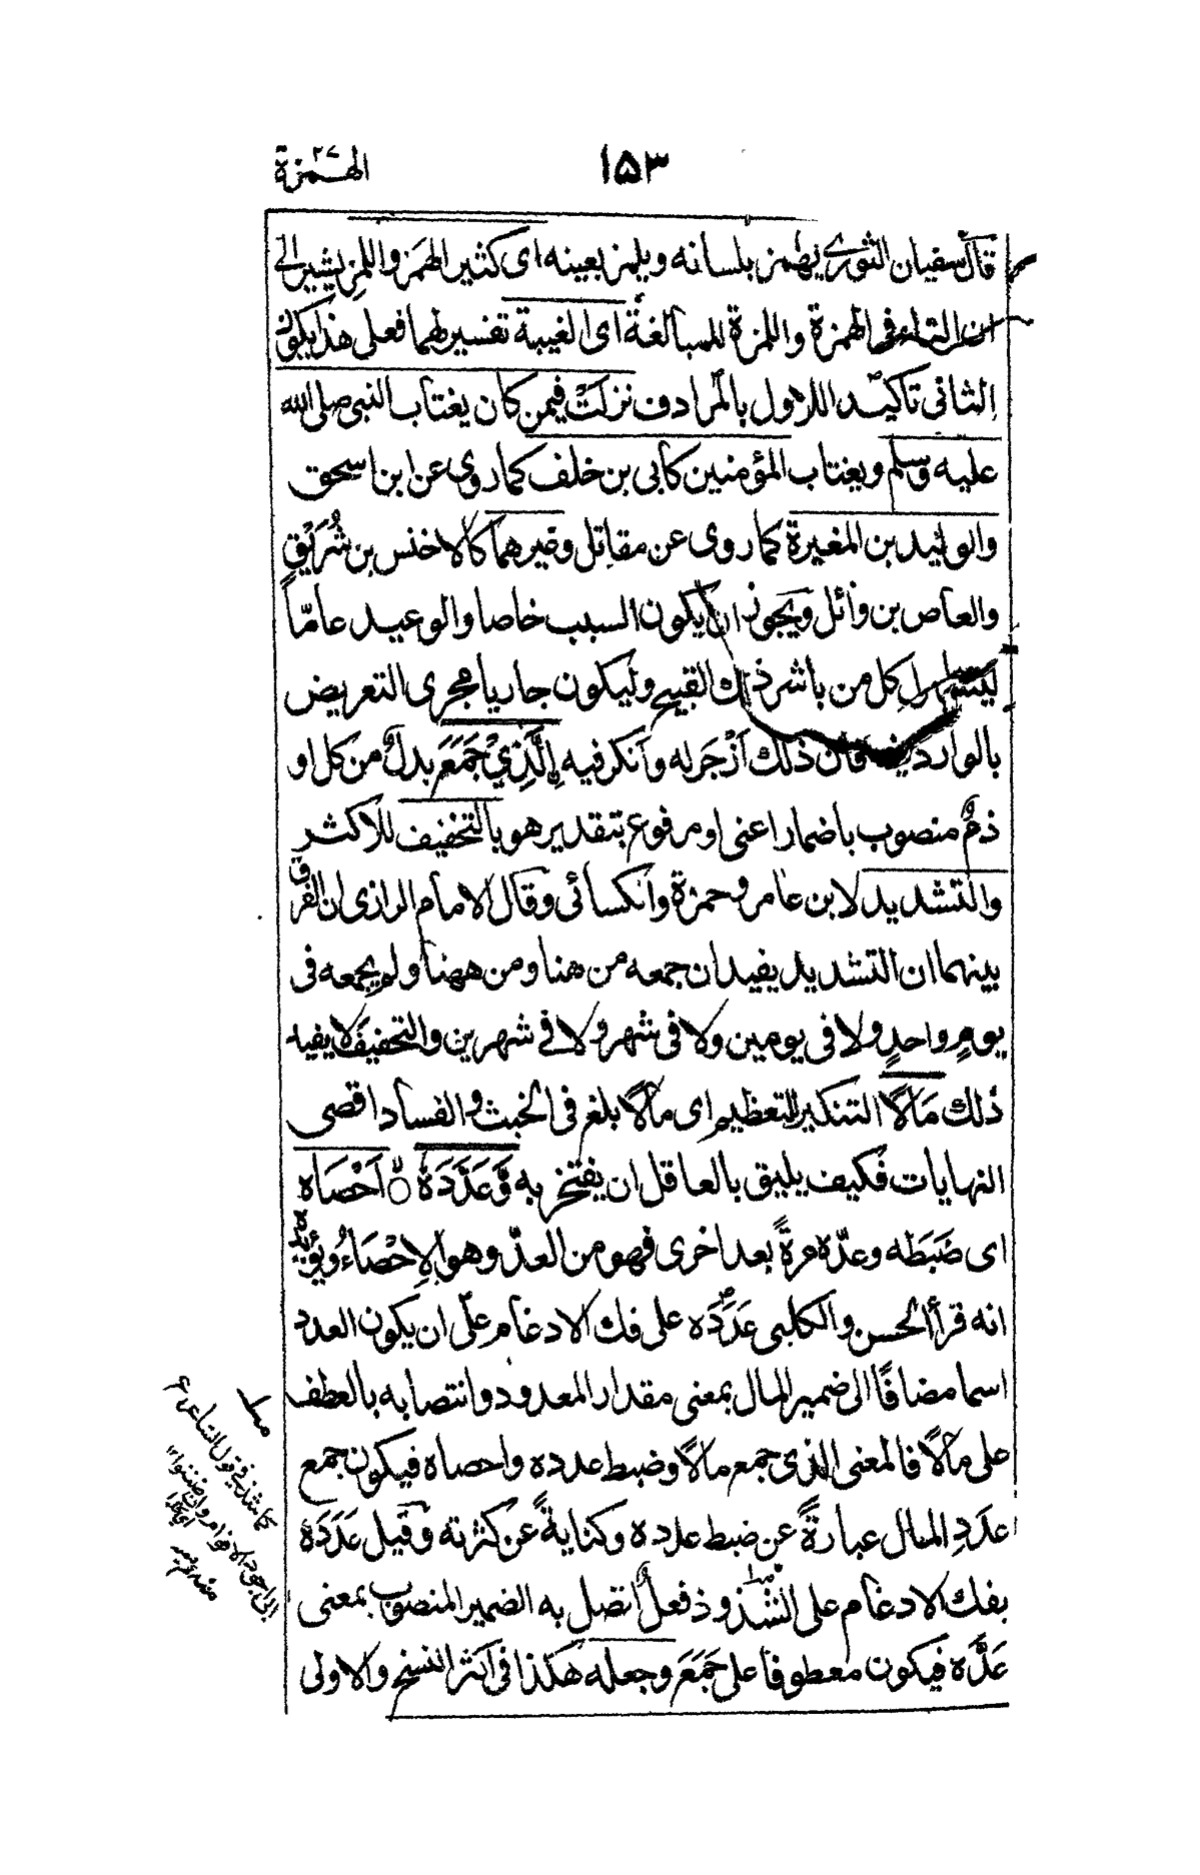 ١٥٣
الهمزة ٢٧
قال سفيان الثوري يهمز بلسانه ويلمز بعينه اى كثير الهمز واللمز يشير الى
ان التاء فى الهمزة واللمزة للمبالغة اى الغيبة تفسير لهما فعلى هذا يكون
الثانى تاكيد اللاول بالمرادف نزلت فيمن كان يغتاب النبى صلى الله
عليه وسلم ويغتاب المؤمنين كابى بن خلف كما روى عن ابن اسحق
والوليد بن المغيرة كما روى عن مقاتل وغيرهما كالاخنس بن شُرَيْقٍ
والعاص بن وائل ويجوز ان يكون السبب خاصا والوعيد عامّاً
ليتناول كل من باشر ذلك القبيح وليكون جاريا مجرى التعريض
بالوارد فيه فان ذلك اَزْجَر له وانكر فيه اِلَّذِيْ جَمَعَ بدل من كل او
ذمٌ منصوب باضمار اعنى او مرفوع بتقدير هو بالتخفيف للاكثر
والتشديد لابن عامر وحمزة والكسائى وقال الامام الرازى ان الفرق
بينهما ان التشديد يفيد ان جمعه من هنا ومن ههنا ولم يجمعه فى
يومٍ واحدٍ ولا فى يومين ولا فى شهر ولا فى شهرين والتخفيف لا يفيد
ذلك مَالًا التنكير للتعظيم اى مالًا بلغ فى الخبث والفساد اقصى
النهايات فكيف يليق بالعاقل ان يفتخر به وَّعَدَّدَهٗ ۙ اَحْصَاه
اى ضَبَطه وعدّه مرةً بعد اخرى فهو من العدّ وهو الاِحْصَاءُ ويؤيده
انه قرأ الحسن والكلبى عَدَدَه على فك الادغام على ان يكون العدد
اسما مضافًا الى ضمير المال بمعنى مقدار المعدود وانتصابه بالعطف
على مالًا فالمعنى الذى جمع مالًا وضبط عدده واحصاه فيكون جمع
عدَدِ المال عبارةً عن ضبط عدده وكنايةً عن كثرته وقيل عَدَدَهٗ
بفك الادغام على الشذوذ فعل اتصل به الضمير المنصوب بمعنى
عَدَّه فيكون معطوفا على جَمَعَ وجعله هكذا فى اكثر النسخ والاولى
كما شذ فى قول الشاعر ع
انى اجود لاقوام وان ضننوا"